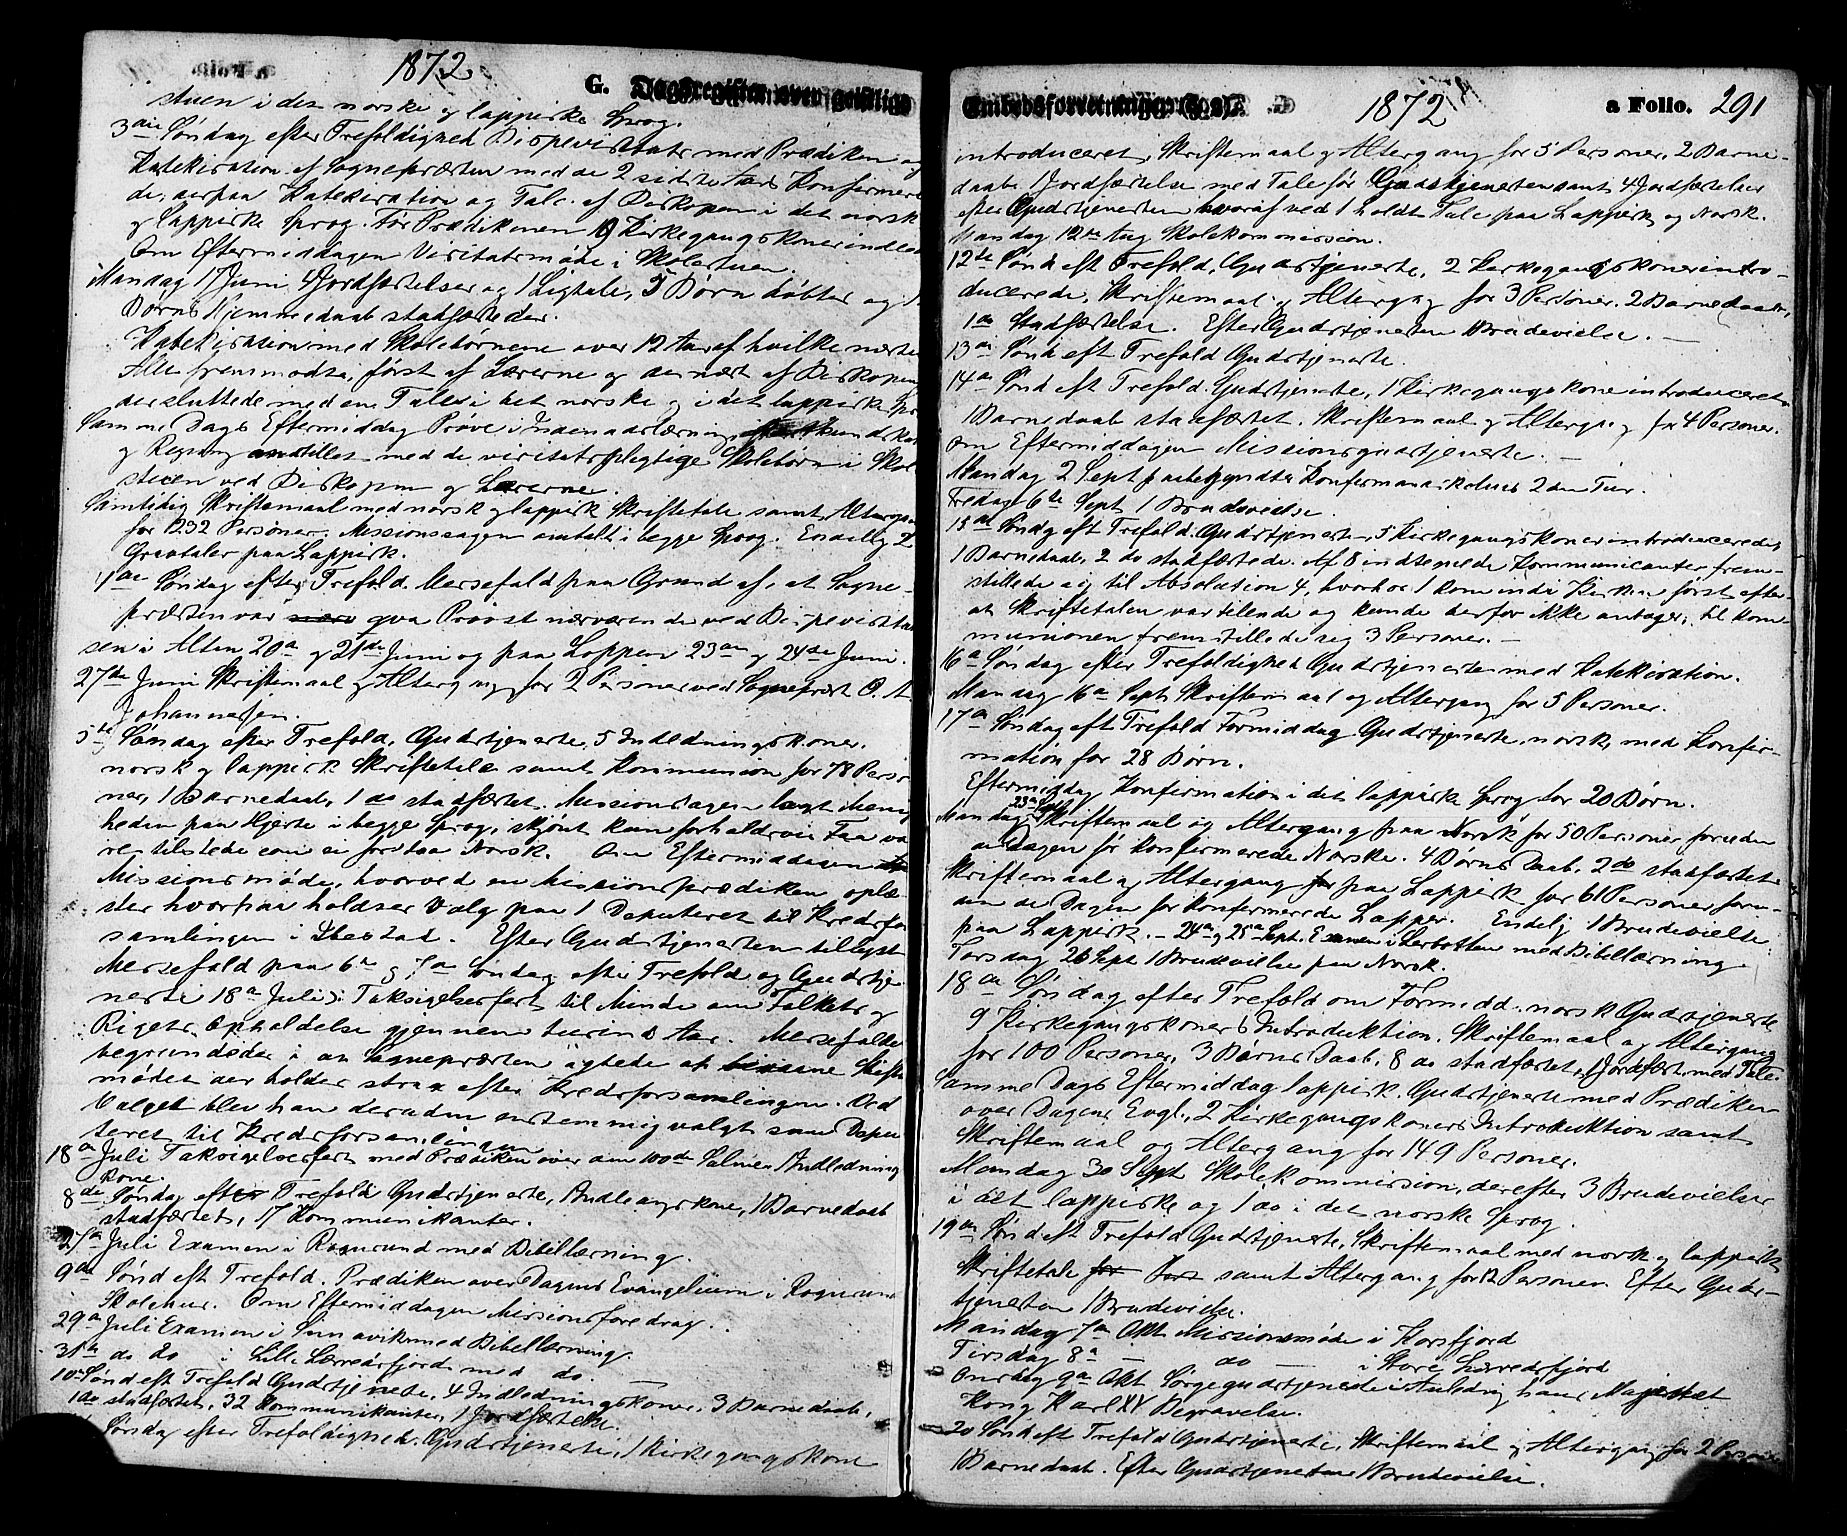 1872
G. Dagsregister over geistlige
stuen i det norske og lappiske Sprog.
3die Søndag efter Trefoldighed Bispevisitats med Prædiken og
Katekisation af Sognepræsten med de 2 sidste Aars Konfirmere
de, derpaa Katekisation og Tale af Biskopen i det norsk
og lappiske Sprog. Før Prædikenen 9 Kirkegangskoner indled
Om Eftermiddagen Visitatsmøde i Skolestuen.
Mandag 17 Juni, 4 Jordfæstelser og 1 Ligtale, 5 Børn døbtes og 1
Børns Hjemmedaab stadfæstedes.
Katekisasion med Skolebørnene over 12 Aar af hvilke næste
Alle fremmødte, først af Lærerne og dernæst af Biskopen
der sluttede med en Tale i det norske og i det lappiske Spr
Samme Dags Eftermiddag Prøve i Indenadslæsning, Skundskab
og Regning anstillet med de visitatspligtige Skolebørn i Skol
stuen ved Biskopen og Lærerne.
Samtidig Skriftemaal med norsk og lappisk Skriftetale samt Altergan
for 232 Personer. Missionssagen omtalt i begge Sprog. Endelig 2
Gravtaler paa Lappisk.
4de Søndag efter Trefold. Messefald paa Grund af, at Sogne-
præsten var qva Provst nærværende ved Bispevisitat
sen i Alten 20de og 21de Juni og paa Loppen 23de og 24de Juni.
27de Juni Skriftemaal og Altergang for 2 Personer ved Sognepræst O. A.
Johannesen.
5te Søndag efter Trefold. Gudstjeneste, 5 Indledningskoner.
norsk og lappisk Skriftetale samt Kommunion for 78 Perso
ner, 1 Barnedaab, 1 do stadfæstet. Missionssagen lagt Menig
heden paa Hjerte i begge Sprog, skjønt kun forholdsvis Faa va
re tilstede som ei forstaa Norsk. Om Eftermiddagen
Missionsmøde, hvorved en Missionsprædiken oplæ
stes hvorpaa holdtes Valg paa 1 Deputeret til Kredsfor
samlingen i Ibestad. Efter Gudstjenesten tillyst
Messefald paa 6te og 7de Søndag efter Trefold. og Gudstje
neste 18de Juli, i Taksigelsesfest til Minde om Folkets og
Rigets Opholdelse gjennem tusend Aar. Messefaldet
begrundedes i at Sognepræsten agtede at Stifts
mødet der holdes strax efter Kredsforsamlingen. Ved
Valget blev han desuden enstemmig valgt som Depu
teret til Kredsforsamlingen
18de Juli Taksigelsesfest med Prædiken over den 100de Salme, 1 Indlednings
kone.
8de Søndag efter Trefold Gudstjeneste, 1 Indledningskone, 1 Barnedaab
stadfæstet, 17 Kommunikanter.
Juli Examen i Rognsund med Bibellæsning.
9de Sønd eft Trefold. Prædiken over Dagens Evangelium i Rognsund
Skolehus. Om Eftermiddagen Missionsforedrag.
29de Juli Examen i Simavik med Bibellæsning.
31te do do i Lille Lerresfjord med do.
10de Sønd eft Trefold Gudstjeneste, 4 Indledningskoner, 3 Barnedaab,
1 do stadfæstet, 32 Kommunikanter, 1 Jordfæstelse.
Søndag efter Trefoldighed. Gudstjeneste, 1 Kirkegangskone
Embedsforretninger (§ 8).
1872
a Folio. 291
introduceret, Skriftemaal og Altergang for 5 Personer, 2 Barne-
daabe, 1 Jordfæstelse med Tale før Gudstjenesten samt 4 Jordfæstelser
efter Gudstjenesten hvoraf ved 1 holdt Tale paa Lappisk og Norsk.
Mandag 12te Aug Skolekommission.
12te Sønd eft Trefold. Gudstjeneste, 2 Kirkegangskoner intro-
ducerede, Skriftemaal og Altergang for 3 Personer, 2 Barnedaab,
1 do Stadfæstelse. Efter Gudstjenesten 1 Brudevielse.
13de Sønd eft Trefold Gudstjeneste.
14de Sønd eft Trefold. Gudstjeneste, 1 Kirkegangskone introduceret
1 Barnedaab stadfæstet. Skriftemaal og Altergang for 4 Personer.
om Eftermiddagen Missionsgudstjeneste.
Mandag 2 Sept paabegyndtes Konfirmandskolens 2den Tur.
Fredag 6te Sept 1 Brudevielse.
15de Søndg eft Trefold. Gudstjeneste 5 Kirkegangskoner introduceredes
1 Barnedaab, 2 do stadfæstede. Af 8 indtegnede Kommunicanter frem-
stillede sig til Absolution 4, hvorhos 1 kom ind i Kirken først efter
at Skriftetalen var tilende og kunde derfor ikke antages; til Kom-
munionen fremstillede sig 3 Personer.
16de Søndag efter Trefoldighed Gudstjeneste med Katekisation.
Mandag 16de Sept. Skriftemaal og Altergang for 5 Personer.
17de Søndag eft Trefold Formiddag Gudstjeneste norsk, med Konfir-
mation for 28 Børn.
Eftermiddag Konfirmation i det lappisk Sprog for 20 Børn.
Mandag 23de Sept Skriftemaal og Altergang paa Norsk for 50 Personer foruden
de Dagen før konfirmerede Norske. 4 Børns Daab, 2 do stadfæstet
Skriftemaal og Altergang paa Lappisk for 61 Personer foru-
den de Dagen før konfirmerede Lapper. Endelig 1 Brudevielse
paa Lappisk. – 24de og 25de Sept. Examen i Lerbotten med Bibellæsning.
Torsdag 26 Sept 1 Brudevielse paa Norsk.
18de Søndag efter Trefold om Formidd. norsk Gudstjeneste
9 Kirkegangskoners Introduktion, Skriftemaal og Altergang
for 100 Personer, 3 Børns Daab, 8 do stadfæstet, 1 Jordfæst. med Tale.
Samme Dags Eftermiddag lappisk Gudstjeneste med Prædiken
over Dagens Evgl., 2 Kirkegangskoners Introduktion samt
Skriftemaal og Altergang for 149 Personer.
Mandag 30 Sept Skolekommission, derefter 3 Brudevielser
i det lappiske og 1 do i det norske Sprog.
19de Sønd eft Trefold Gudstjeneste, Skriftemaal med norsk og lappisk
Skriftetale for samt Altergang for 12 Personer. Efter Guds-
tjenesten 1 Brudevielse.
Mandag 7de Okt Missionsmøde i Korsfjord
Tirsdag 8de — do — i Store Lerresfjord
Onsdag 9de Okt Sørgegudstjeneste i Anledning hans Majestæt
Kong Karl XV Begravelse.
20 Sønd eft Trefold Gudstjeneste, Skriftemaal og Altergang for 2 Persone
1 Barnedaab. Efter Gudstjenesten 1 Brudevielse.